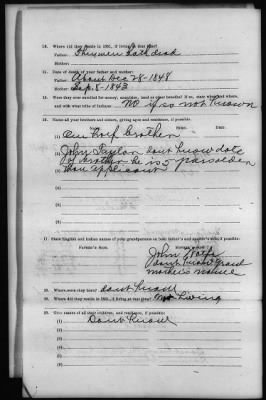 13. Where did they reside in 1851, if living at that time?
Father: They were both dead
Mother:
14. Date of death of your father and mother:
Father: About Dec 28-1848
Mother: Sep. 8-1843
15. Were they ever enrolled for annuities, land or other benefits? If so, state when and where,
and with what tribe of Indians: No if so not known
16. Name all your brothers and sisters, giving ages, and residence if possible:
(1) One half brother
John dont know date
of brother he is 5 years older
than applicant
17. State English and Indian names of your grandparents on both father's and mother's side, if possible:
Father's Side. Mother's Side.
John
dont know grand
mother's name
18. Where were they born? dont know
19. Where did they reside in 1851, if living at that time? Not Living
20. Give names of all their children, and residence, if possible:
(1) Dont know
(2)
(3)
(4)
(5)
(6)